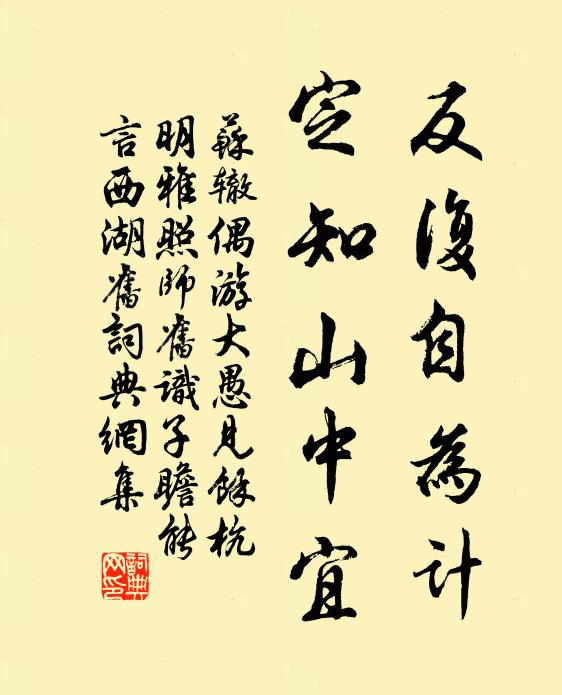 反復自為計
定知山中宜
蘇轍偶游大愚見餘杭
明雅照師舊識子瞻能
言西湖舊詞典網集
詞典
网印